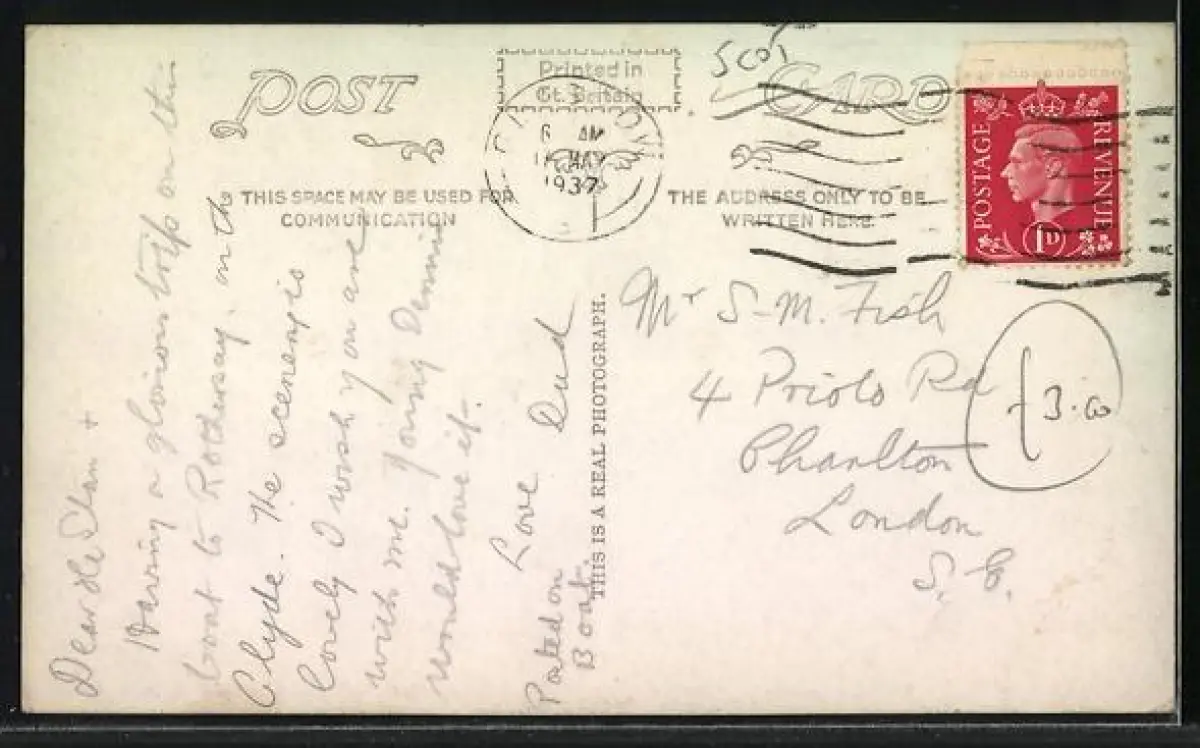 POST CARD
Printed in
Gt. Britain
6 AM
MAY
1937
Scot
POSTAGE REVENUE
1D
THIS SPACE MAY BE USED FOR
COMMUNICATION
THE ADDRESS ONLY TO BE
WRITTEN HERE.
Dear
Having a glorious trip on this
boat to Rothersay. on the
Clyde. The scenery is
lovely I wish you are
with me. Young Dennis
would love it.
Love Dud
Posted on
Boat.
THIS IS A REAL PHOTOGRAPH.
Mr S-M. Fish
4 Priolo Rd
Charlton
London
S. E.